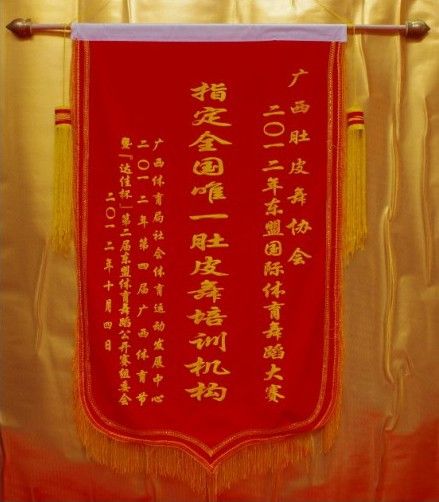 广西肚皮舞协会
二〇一二年东盟国际体育舞蹈大赛
指定全国唯一肚皮舞培训机构
广西体育局社会体育运动发展中心
二〇一二年第四届广西体育节
暨“达佳杯”第二届东盟体育舞蹈公开赛组委会
二〇一二年十月四日